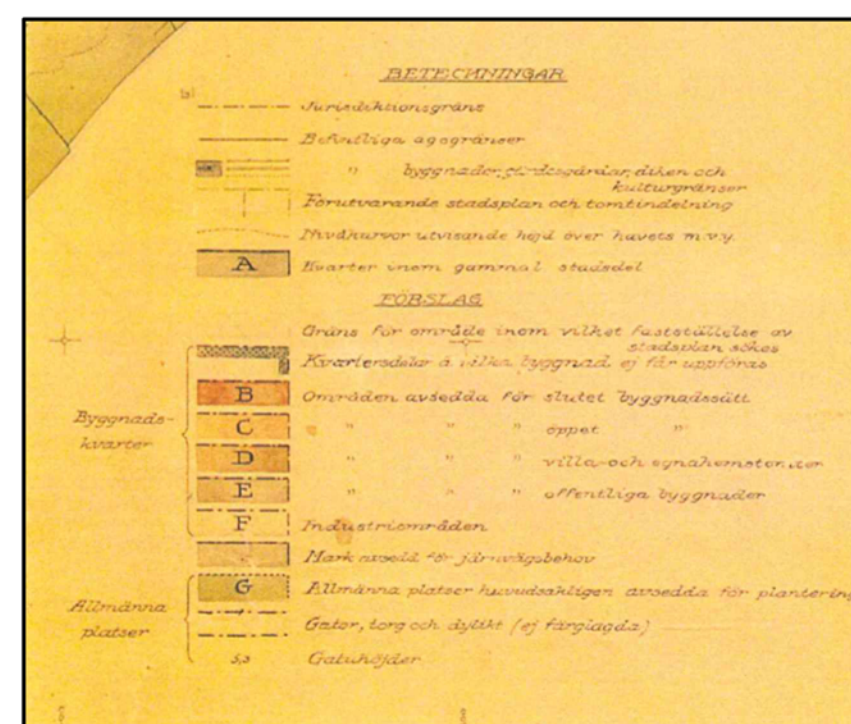 BETECKNINGAR
Jurisdiktionsgräns
Befintliga ägogränser
" byggnader, gärdesgårdar, diken och
kulturgränser
Förutvarande stadsplan och tomtindelning
Nivåkurvor utvisande höjd över havets m.v.y.
A Kvarter inom gammal stadsdel
FÖRSLAG
Gräns för område inom vilket fastställelse av
stadsplan sökes
Kvartersdelar å vilka byggnad ej får uppföras
Byggnads-
kvarter
B Områden avsedda för slutet byggnadssätt
C " " " öppet "
D " " " villa- och egnahemstomter
E " " " offentliga byggnader
F Industriområden
Mark avsedd för järnvägsbehov
Allmänna
platser
G Allmänna platser huvudsakligen avsedda för plantering
Gator, torg och dylikt (ej färglagda)
5,5 Gatuhöjder